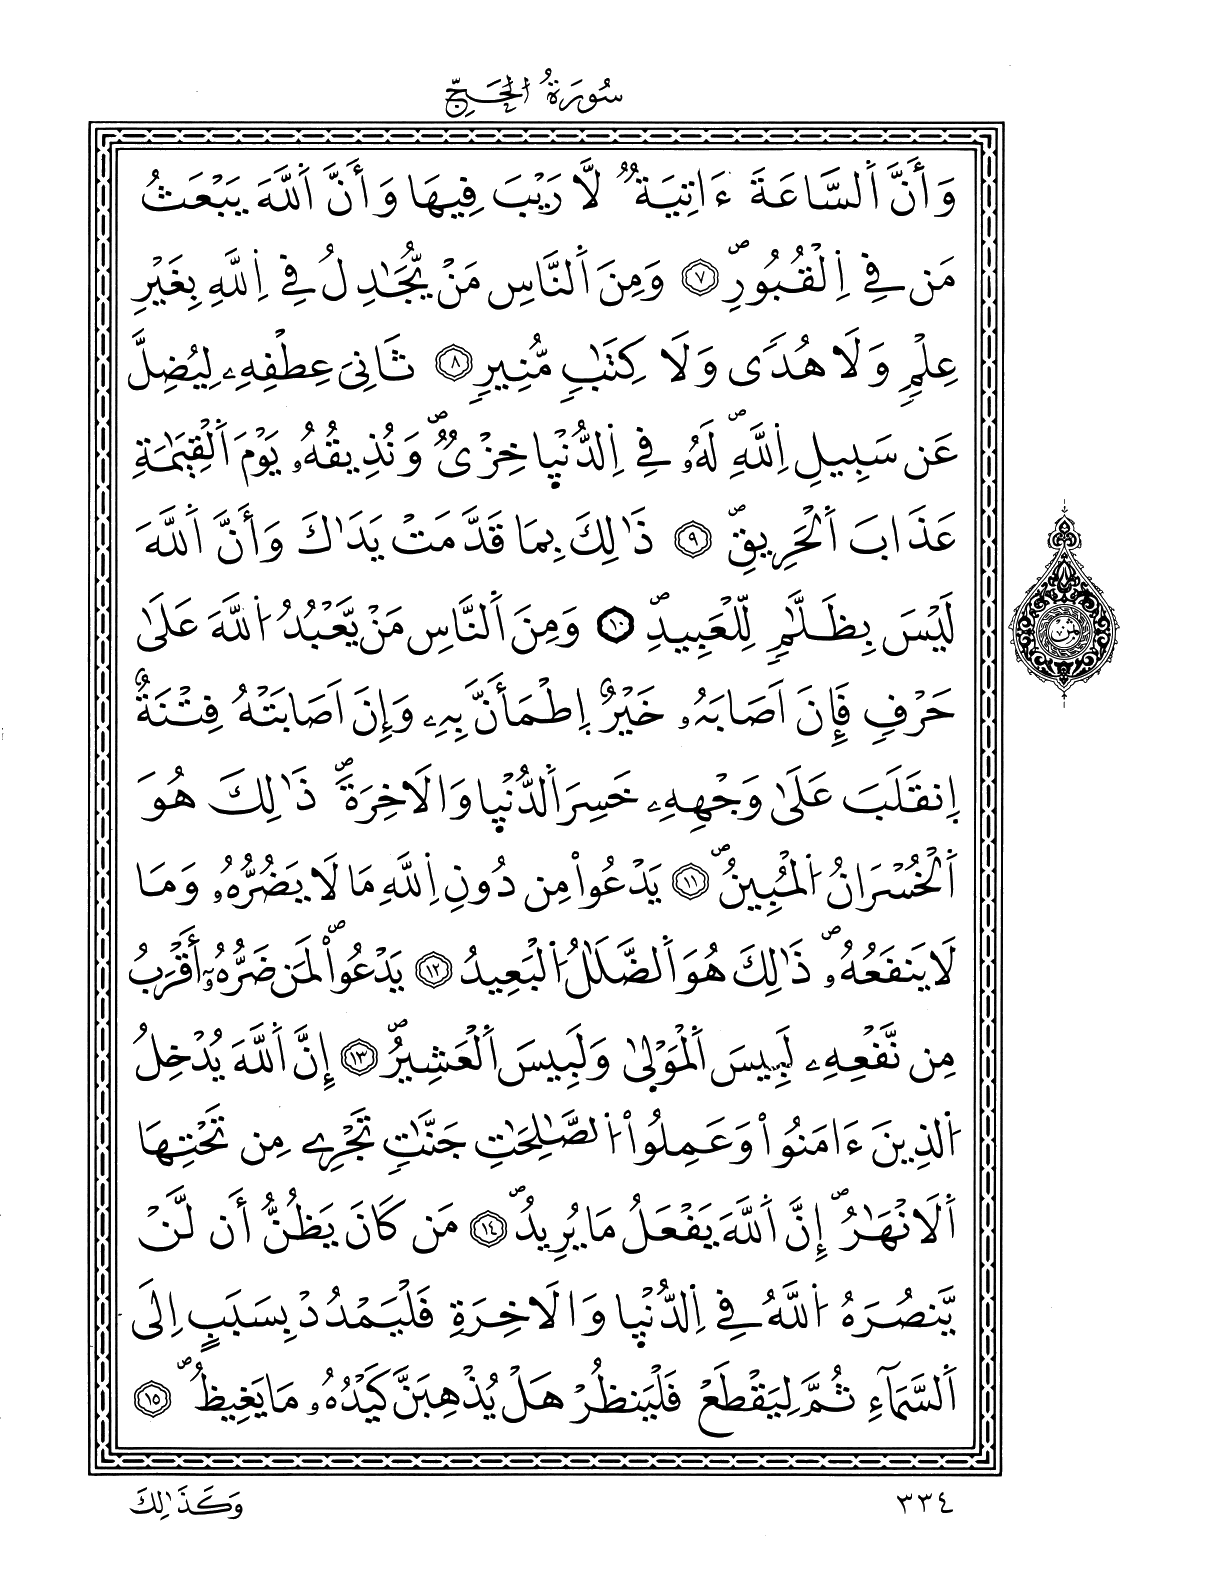 سُورَةُ الْحَجِّ
وَأَنَّ اَ۬لسَّاعَةَ ءَاتِيَةٞ لَّا رَيْبَ فِيهَا وَأَنَّ اَ۬للَّهَ يَبْعَثُ
مَن فِے اِ۬لْقُبُورِۖ ٧ وَمِنَ اَ۬لنَّاسِ مَنْ يُّجَٰدِلُ فِے اِ۬للَّهِ بِغَيْرِ
عِلْمٖ وَلَا هُدٗى وَلَا كِتَٰبٖ مُّنِيرٖ ٨ ثَانِيَ عِطْفِهِۦ لِيُضِلَّ
عَن سَبِيلِ اِ۬للَّهِۖ لَهُۥ فِے اِ۬لدُّنْي۪ا خِزْيٞۖ وَنُذِيقُهُۥ يَوْمَ اَ۬لْقِيَٰمَةِ
عَذَابَ اَ۬لْحَرِيقِۖ ٩ ذَٰلِكَ بِمَا قَدَّمَتْ يَدَٰكَ وَأَنَّ اَ۬للَّهَ
لَيْسَ بِظَلَّٰمٖ لِّلْعَبِيدِۖ ١٠ وَمِنَ اَ۬لنَّاسِ مَنْ يَّعْبُدُ اُ۬للَّهَ عَلَىٰ
حَرْفٖ فَإِنَ اَصَابَهُۥ خَيْرٌ اِ۪طْمَأَنَّ بِهِۦ وَإِنَ اَصَابَتْهُ فِتْنَةٌ
اِ۪نقَلَبَ عَلَىٰ وَجْهِهِۦ خَسِرَ اَ۬لدُّنْي۪ا وَالَاخِرَةَۖ ذَٰلِكَ هُوَ
اَ۬لْخُسْرَانُ اُ۬لْمُبِينُۖ ١١ يَدْعُواْ مِن دُونِ اِ۬للَّهِ مَا لَا يَضُرُّهُۥ وَمَا
لَا يَنفَعُهُۥۖ ذَٰلِكَ هُوَ اَ۬لضَّلَٰلُ اُ۬لْبَعِيدُ ١٢ يَدْعُواْۖ لَمَن ضَرُّهُۥٓ أَقْرَبُ
مِن نَّفْعِهِۦ لَبِيسَ اَ۬لْمَوْل۪ىٰ وَلَبِيسَ اَ۬لْعَشِيرُۖ ١٣ إِنَّ اَ۬للَّهَ يُدْخِلُ
اُ۬لذِينَ ءَامَنُواْ وَعَمِلُواْ اُ۬لصَّٰلِحَٰتِ جَنَّٰتٖ تَجْرِے مِن تَحْتِهَا
اَ۬لَانْهَٰرُۖ إِنَّ اَ۬للَّهَ يَفْعَلُ مَا يُرِيدُۖ ١٤ مَن كَانَ يَظُنُّ أَن لَّنْ
يَّنصُرَهُ اُ۬للَّهُ فِے اِ۬لدُّنْي۪ا وَالَاخِرَةِ فَلْيَمْدُدْ بِسَبَبٍ اِلَى
اَ۬لسَّمَآءِ ثُمَّ لِيَقْطَعْ فَلْيَنظُرْ هَلْ يُذْهِبَنَّ كَيْدُهُۥ مَا يَغِيظُۖ ١٥
ثمن
٣٣٤
وَكَذَٰلِكَ